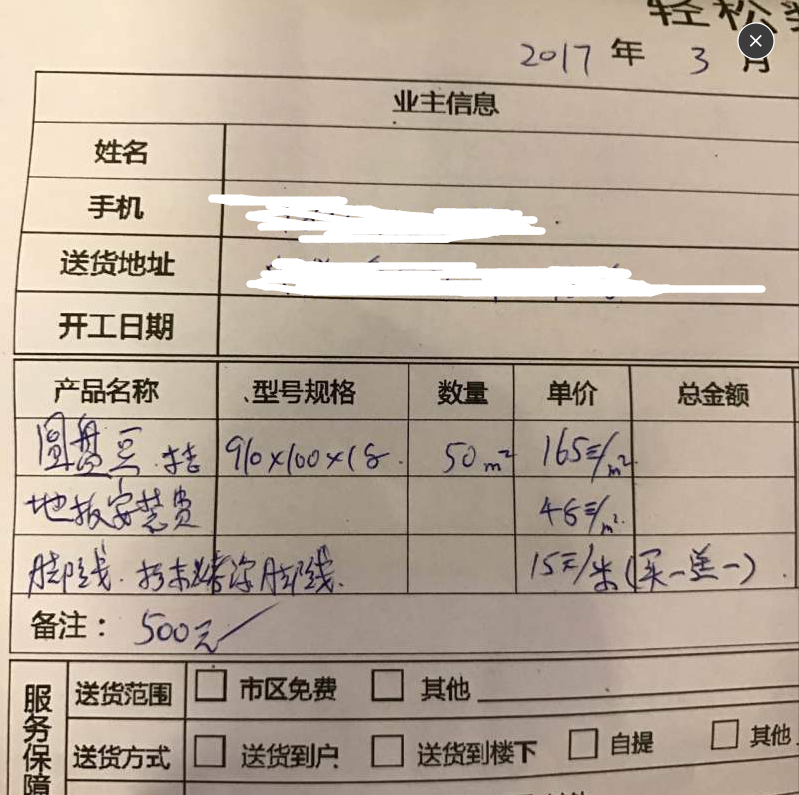 轻松
2017 年 3 月
业主信息
姓名
手机
送货地址
开工日期
产品名称 型号规格 数量 单价 总金额
圆盘豆 910×100×18 50m² 165元/m²
地板安装费 45元/m²
脚线 脚线 15元/米(买一送一)
备注: 500元
服务保障
送货范围 市区免费 其他
送货方式 送货到户 送货到楼下 自提 其他